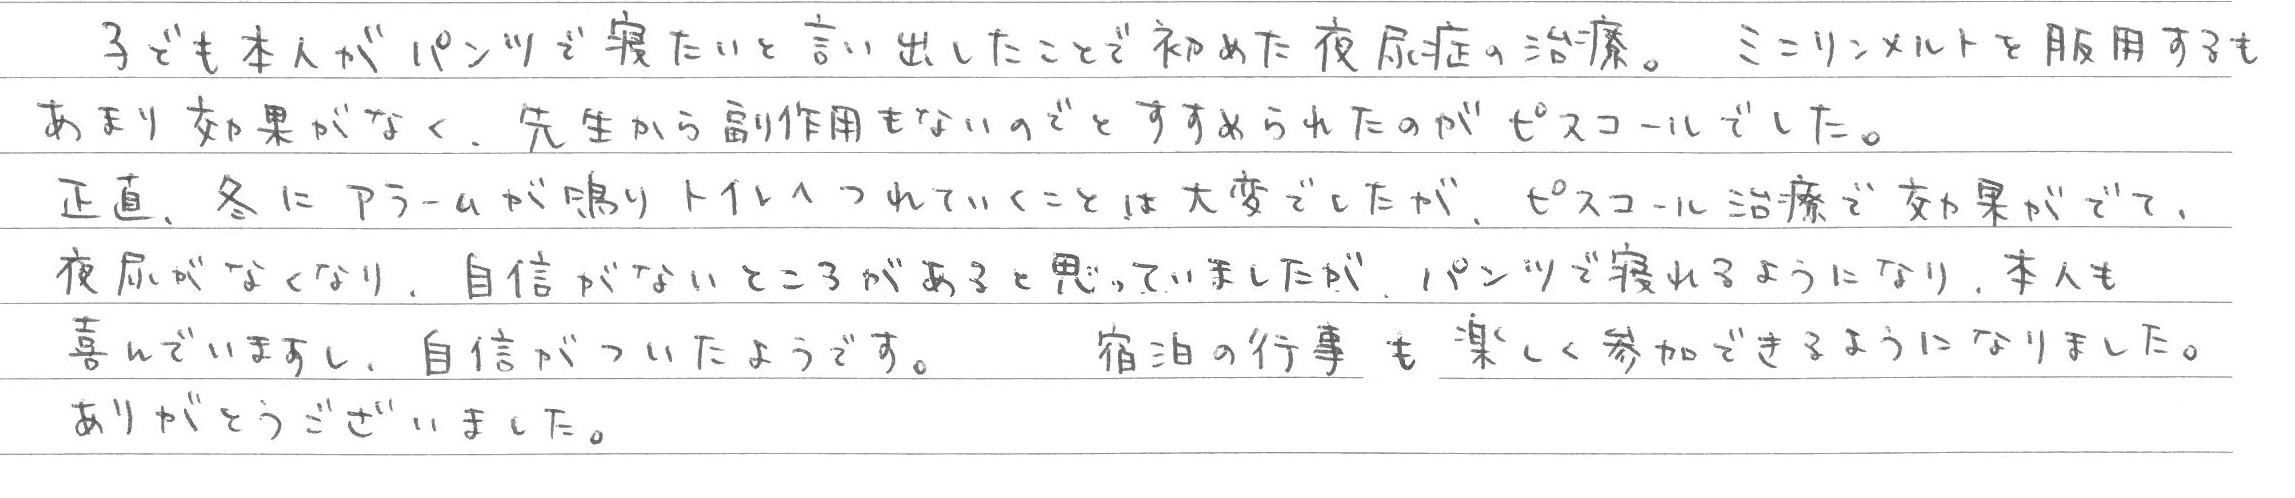 子ども本人がパンツで寝たいと言い出したことで初めた夜尿症の治療。 ミニリンメルトを服用するも
あまり効果がなく、先生から副作用もないのでとすすめられたのがピスコールでした。
正直、冬にアラームが鳴りトイレへつれていくことは大変でしたが、ピスコール治療で効果がでて、
夜尿がなくなり、自信がないところがあると思っていましたが、パンツで寝れるようになり、本人も
喜んでいますし、自信がついたようです。 宿泊の行事も楽しく参加できるようになりました。
ありがとうございました。